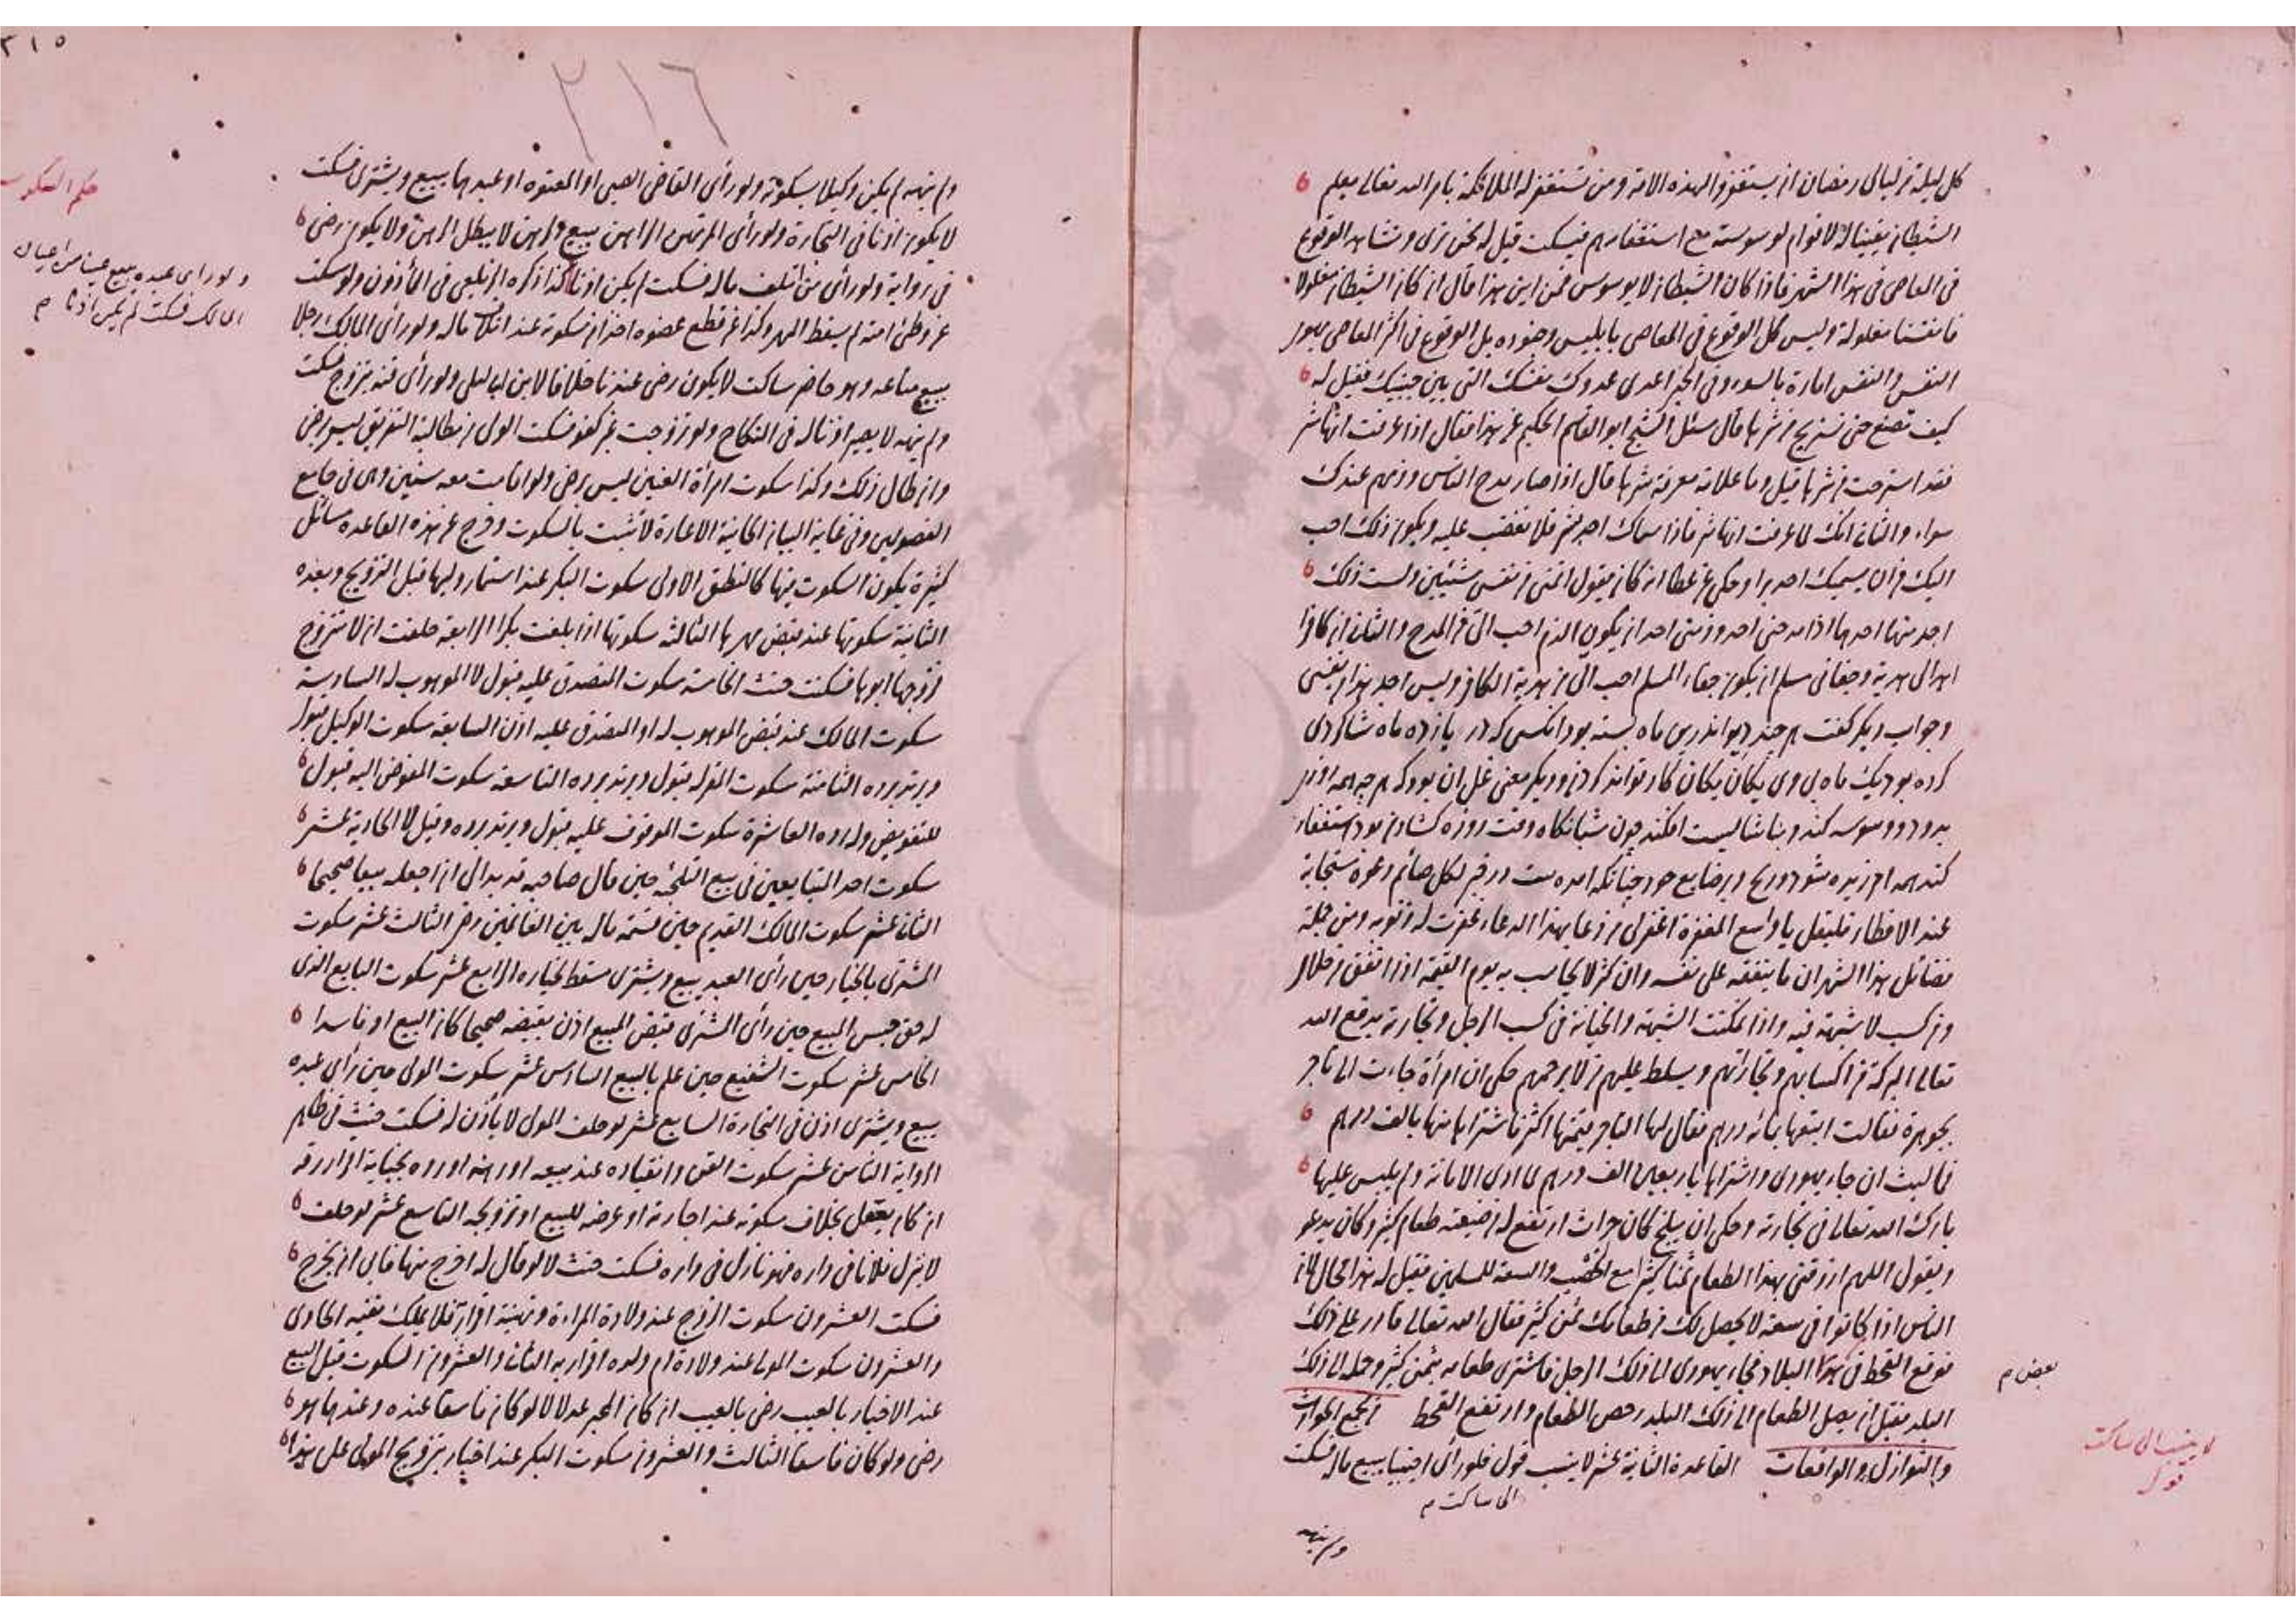 كل ليلة من ليالي رمضان ان يستغفروا لهذه الامة ومن تستغفر له الملائكة بامر الله تعالى يعلم
الشيطان يقينا له لا قوام لوسوسته مع استغفارهم فيسكت قيل له نحن نرى ونشاهد الوقوع
في المعاصي في هذا الشهر فاذا كان الشيطان لا يوسوس فمن اين هذا قال ان كان الشيطان مغلولا
فانفسنا مغلولة وليس كل الوقوع في المعاصي بابليس وجنوده بل الوقوع في اكثر المعاصي بهوى
النفس والنفس امارة بالسوء وفي الخبر اعدى عدوك نفسك التي بين جنبيك فقيل له
كيف تصنع حتى تستريح من شرها قال سئل الشيخ ابو القاسم الحكيم عن هذا فقال اذا عرفت انها شر
فقد استرحت من شرها قيل وما علامة معرفة شرها قال اذا صار مدح الناس وذمهم عندك
سواء والثاني انك لما عرفت انها شر فاذا سماك احد بشر فلا تغضب عليه ويكون ذلك احب
اليك من ان يسميك احد برا وحكي عن عطا انه كان يقول اتمنى من نفسي شيئين ولست ذلك
اجد منها احدهما اذا مدحني احد وذمني احد ان يكون الذم احب الي من المدح والثاني ان كافرا
اهدى الي هدية وجفاني مسلم ان يكون جفاء المسلم احب الي من هدية الكافر وليس اجد هذا من نفسي
وجواب ديكر كفت هر چند ديو اندرين ماه بسته بود انكسى كه در يازده ماه شاكردى
كرده بود يك ماه بى وى يكان يكان كار تواند كردن وديكر معنى غل ان بود كه هر چه همه روز
بدود ووسوسه كند وبناشايست افكند چون شبانكاه وقت روزه كشادن بود استغفار
كند همه امرزيده شود ورنج وى ضايع شود چنانكه امده ست در خبر لكل صائم دعوة مستجابة
عند الافطار فليقل يا واسع المغفرة اغفر لي من دعا بهذا الدعاء غفرت له ذنوبه ومن جملة
فضائل هذا الشهر ان ما ينفقه على نفسه وان كثر لا يحاسب به يوم القيمة اذا انفق من حلال
ومن كسب لا شبهة فيه واذا تمكنت الشبهة والخيانة في كسب الرجل وتجارته يدفع الله
تعالى البركة من اكسابهم وتجاراتهم ويسلط عليهم من لا يرحمهم حكي ان امرأة جاءت الى تاجر
بجوهرة فقالت ابتعها بمائة درهم فقال لها التاجر قيمتها اكثر فاشتراها منها بالف درهم
فما لبث ان جاء يهودي واشتراها باربعين الف درهم لما ادى الامانة ولم يلبس عليها
بارك الله تعالى في تجارته وحكي ان ببلخ كان حراث ارتفع له من ضيعته طعام كثير وكان يدعو
ويقول اللهم ارزقني بهذا الطعام ثمنا كثيرا مع الخصب والسعة للمسلمين فقيل له هذا محال لان
الناس اذا كانوا في سعة لا يحصل لك من طعامك ثمن كثير فقال الله تعالى قادر على ذلك
فوقع القحط في هذا البلاد فجاء يهودي الى ذلك الرجل فاشترى طعامه بثمن كثير وحمله الى ذلك
بعض م
البلد فقبل ان يصل الطعام الى ذلك البلد رخص الطعام وارتفع القحط
والنوازل والواقعات القاعدة الثانية عشر لا ينسب قول فلو رأى اجنبيا يبيع ماله فسكت
الى ساكت م
لا ينسب الى ساكت
قول
ولم ينهه
٢١٥
٢١٦
ولم ينهه لم يكن وكيلا بسكوته ولو رأى القاضي الصبي او المعتوه او عبدهما يبيع ويشتري فسكت
حكم السكوت
لا يكون اذنا في التجارة ولو رأى المرتهن الراهن يبيع الرهن لا يبطل الرهن ولا يكون رضى
ولو رأى عبده يبيع عينا من اعيان
المالك فسكت لم يكن اذنا م
في رواية ولو رأى من اتلف ماله فسكت لم يكن اذنا كذا ذكره الزيلعي في المأذون ولو سكت
عن وطئ امته لم يسقط المهر وكذا عن قطع عضوه اخذا من سكوته عند اتلاف ماله ولو رأى المالك رجلا
يبيع متاعه وهو حاضر ساكت لا يكون رضى عندنا خلافا لابن ابي ليلى ولو رأى قنه يتزوج فسكت
ولم ينهه لا يصير اذنا له في النكاح ولو تزوجت غير كفو فسكت الولي من مطالبة التفريق ليس رضى
وان طال ذلك وكذا سكوت امرأة العنين ليس رضى ولو اقامت معه سنين وهي في جامع
الفصولين وفي غاية البيان الحانية الاعارة لا تثبت بالسكوت وخرج عن هذه القاعدة مسائل
كثيرة يكون السكوت فيها كالنطق الاولى سكوت البكر عند استيمار وليها قبل التزويج وبعده
الثانية سكوتها عند قبض مهرها الثالثة سكوتها اذا بلغت بكرا الرابعة حلفت ان لا تتزوج
فزوجها ابوها فسكتت حنث الخامسة سكوت المتصدق عليه قبول لا الموهوب له السادسة
سكوت المالك عند قبض الموهوب له او المتصدق عليه اذن السابعة سكوت الوكيل قبول
ويرتد برده الثامنة سكوت المقر له قبول ويرتد برده التاسعة سكوت المفوض اليه قبول
للتفويض وله رده العاشرة سكوت الموقوف عليه قبول ويرتد برده وقيل لا الحادية عشر
سكوت احد المتبايعين في بيع التلجئة حين قال صاحبه قد بدا لي ان اجعله بيعا صحيحا
الثاني عشر سكوت المالك القديم حين قسمة ماله بين الغانمين رضى الثالث عشر سكوت
المشتري بالخيار حين رأى العبد يبيع ويشتري مسقط لخياره الرابع عشر سكوت البايع الذي
له حق حبس المبيع حين رأى المشتري قبض المبيع اذن بقبضه صحيحا كان البيع او فاسدا
الخامس عشر سكوت الشفيع حين علم بالبيع السادس عشر سكوت المولى حين رأى عبده
يبيع ويشتري اذن في التجارة السابع عشر لو حلف المولى لا يأذن له فسكت حنث في ظاهر
الرواية الثامن عشر سكوت القن وانقياده عند بيعه او رهنه او دفعه بجناية اقرار برقه
ان كان يعقل بخلاف سكوته عند اجارته او عرضه للبيع او تزويجه التاسع عشر لو حلف
لا ينزل فلانا في داره فهو نازل في داره فسكت حنث لا لو قال له اخرج منها فابى ان يخرج
فسكت العشرون سكوت الزوج عند ولادة المرأة وتهنية اقرار فلا يملك نفيه الحادي
والعشرون سكوت المولى عند ولادة ام ولده اقرار به الثاني والعشرون السكوت قبل البيع
عند الاخبار بالعيب رضى بالعيب ان كان المخبر عدلا لا لو كان فاسقا عنده وعندهما هو
رضى ولو كان فاسقا الثالث والعشرون سكوت البكر عند اخبار بتزويج المولى على هذا